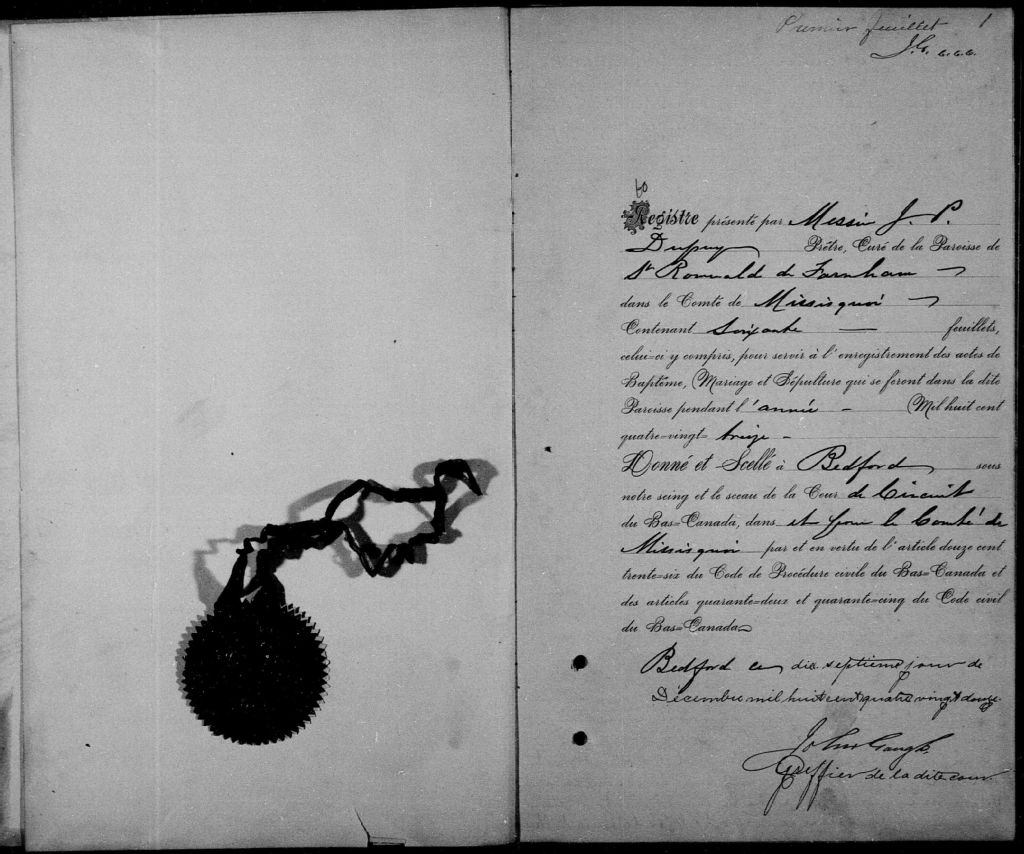 Premier feuillet 1
J.G. c.c.c.
60
Registre présenté par Messire J. P.
Dupuy Prêtre, Curé de la Paroisse de
St Romuald de Farnham —
dans le Comté de Missisquoi —
Contenant Soixante — feuillets,
celui=ci y compris, pour servir à l'enregistrement des actes de
Baptême, Mariage et Sépulture qui se feront dans la dite
Paroisse pendant l'année — Mil huit cent
quatre=vingt= treize —
Donné et Scellé à Bedford sous
notre seing et le sceau de la Cour de Circuit
du Bas=Canada, dans et pour le Comté de
Missisquoi par et en vertu de l'article douze cent
trente=six du Code de Procédure civile du Bas=Canada et
des articles quarante=deux et quarante=cinq du Code civil
du Bas=Canada
Bedford ce dix septième jour de
Décembre mil huit cent quatre vingt douze.
John Gough
Greffier de la dite cour